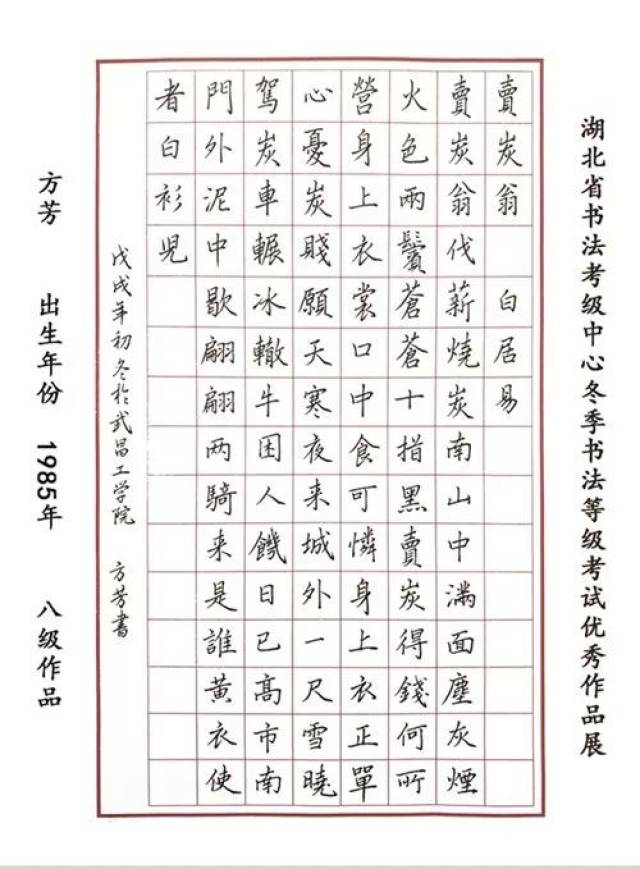 湖北省书法考级中心冬季书法等级考试优秀作品展
賣炭翁 白居易
賣炭翁伐薪燒炭南山中滿面塵灰煙
火色兩鬢蒼蒼十指黑賣炭得錢何所
營身上衣裳口中食可憐身上衣正單
心憂炭賤願天寒夜来城外一尺雪曉
駕炭車輾冰轍牛困人饑日已高市南
門外泥中歇翩翩两騎来是誰黃衣使
者白衫兒
戊戌年初冬於武昌工学院 方芳書
方芳 出生年份 1985年 八级作品